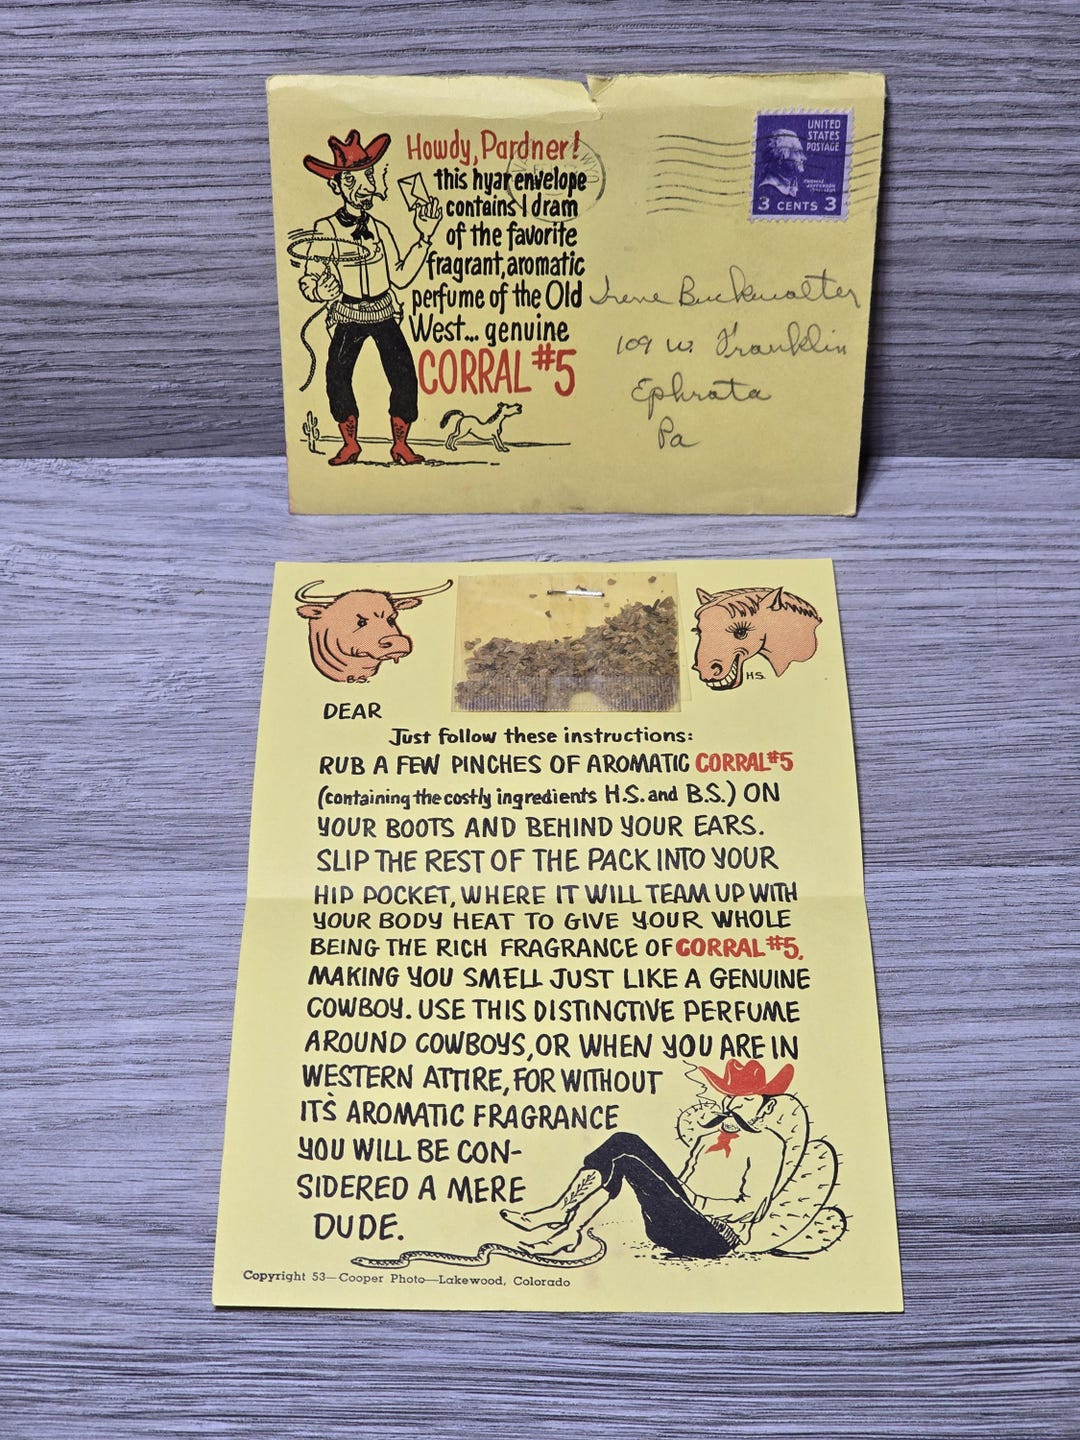 Howdy, Pardner!
this hyar envelope
contains 1 dram
of the favorite
fragrant, aromatic
perfume of the Old
West... genuine
CORRAL #5
WYO
UNITED
STATES
POSTAGE
THOMAS
JEFFERSON
3 CENTS 3
Irene Buckwalter
109 W. Franklin
Ephrata
Pa
B.S.
H.S.
DEAR
Just follow these instructions:
RUB A FEW PINCHES OF AROMATIC CORRAL #5
(containing the costly ingredients H.S. and B.S.) ON
YOUR BOOTS AND BEHIND YOUR EARS.
SLIP THE REST OF THE PACK INTO YOUR
HIP POCKET, WHERE IT WILL TEAM UP WITH
YOUR BODY HEAT TO GIVE YOUR WHOLE
BEING THE RICH FRAGRANCE OF CORRAL #5,
MAKING YOU SMELL JUST LIKE A GENUINE
COWBOY. USE THIS DISTINCTIVE PERFUME
AROUND COWBOYS, OR WHEN YOU ARE IN
WESTERN ATTIRE, FOR WITHOUT
IT'S AROMATIC FRAGRANCE
YOU WILL BE CON-
SIDERED A MERE
DUDE.
Copyright 53—Cooper Photo—Lakewood, Colorado